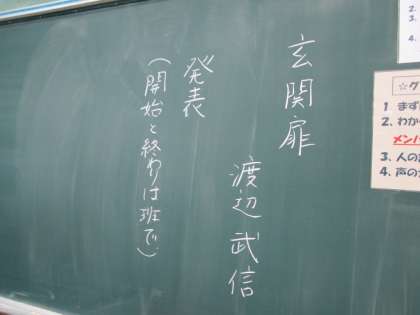 玄関扉
渡辺武信
発表
(開始と終わりは班で)
☆グ
1 まず
2、わか
メンバ
3、人の
4、声の
2.
3.
4.